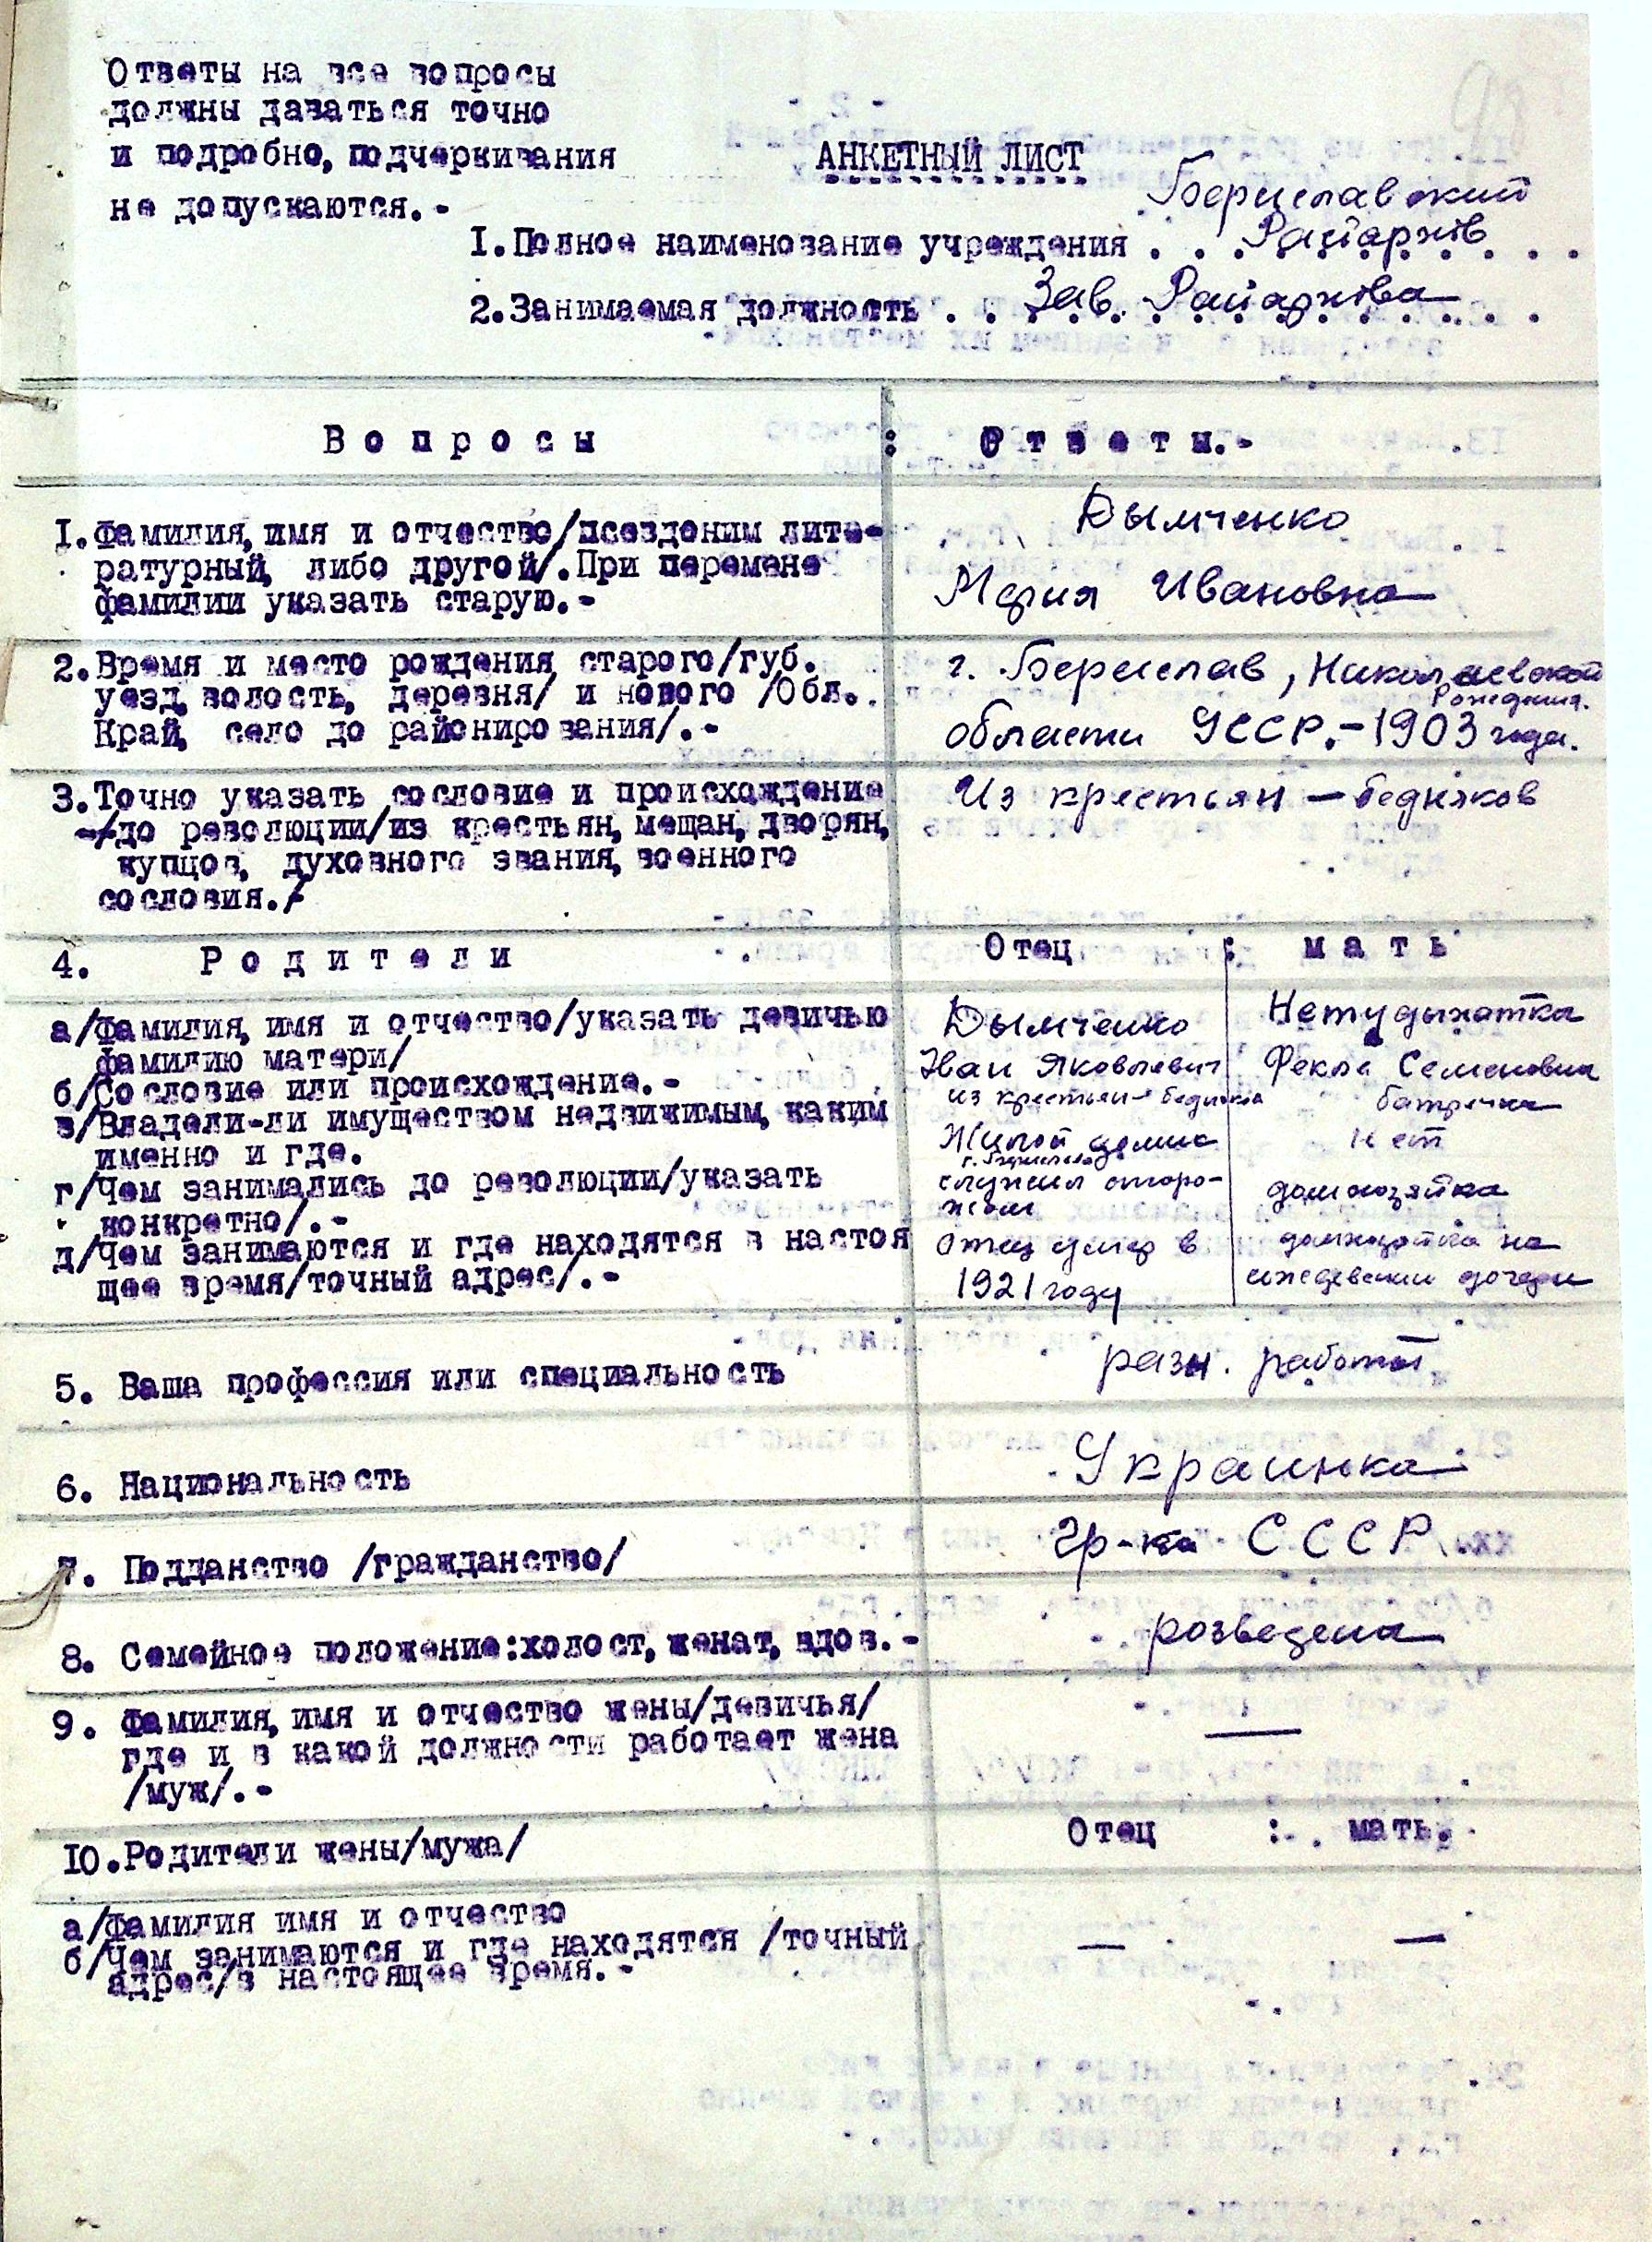 Ответы на все вопросы
должны даваться точно
и подробно, подчеркивания
не допускаются.-
АНКЕТНЫЙ ЛИСТ
Бериславский
1.Полное наименование учреждения . . Райархів
2.Занимаемая должность . . Зав. Райархіва
Вопросы : Ответы.-
1.Фамилия, имя и отчество/псевдоним лите-
ратурный, либо другой/.При перемене
фамилии указать старую.-
Дымченко
Мария Ивановна
2.Время и место рождения старого/губ.
уезд, волость, деревня/ и нового /Обл.
Край, село до районирования/.-
г. Берислав, Николаевской
рождения.
области УССР.-1903 года.
3.Точно указать сословие и происхождение
-/до революции/из крестьян, мещан, дворян,
купцов, духовного звания, военного
сословия./
Из крестьян - бедняков
4. Родители Отец : мать
а/Фамилия, имя и отчество/указать девичью
фамилию матери/
б/Сословие или происхождение.-
в/Владели-ли имуществом недвижимым, каким
именно и где.
г/Чем занимались до революции/указать
конкретно/.-
д/Чем занимаются и где находятся в настоя
щее время/точный адрес/.-
Дымченко
Іван Яковлевич
из крестьян-бедняков
Жилой домик
г. Берислав
служил сторо-
жом
Отец умер в
1921 году
Нетудыхатка
Фекла Семеновна
батрачка
нет
домохозяйка
домохозяйка на
иждевении дочери
5. Ваша профессия или специальность разн. работы
6. Национальность Украинка
7. Подданство /гражданство/ гр-ка СССР.
8. Семейное положение:холост, женат, вдов.- розведена
9. Фамилия, имя и отчество жены/девичья/
где и в какой должности работает жена
/муж/.- —
10.Родители жены/мужа/ Отец : мать.
а/Фамилия имя и отчество
б/Чем занимаются и где находятся /точный — —
адрес/в настоящее время.-